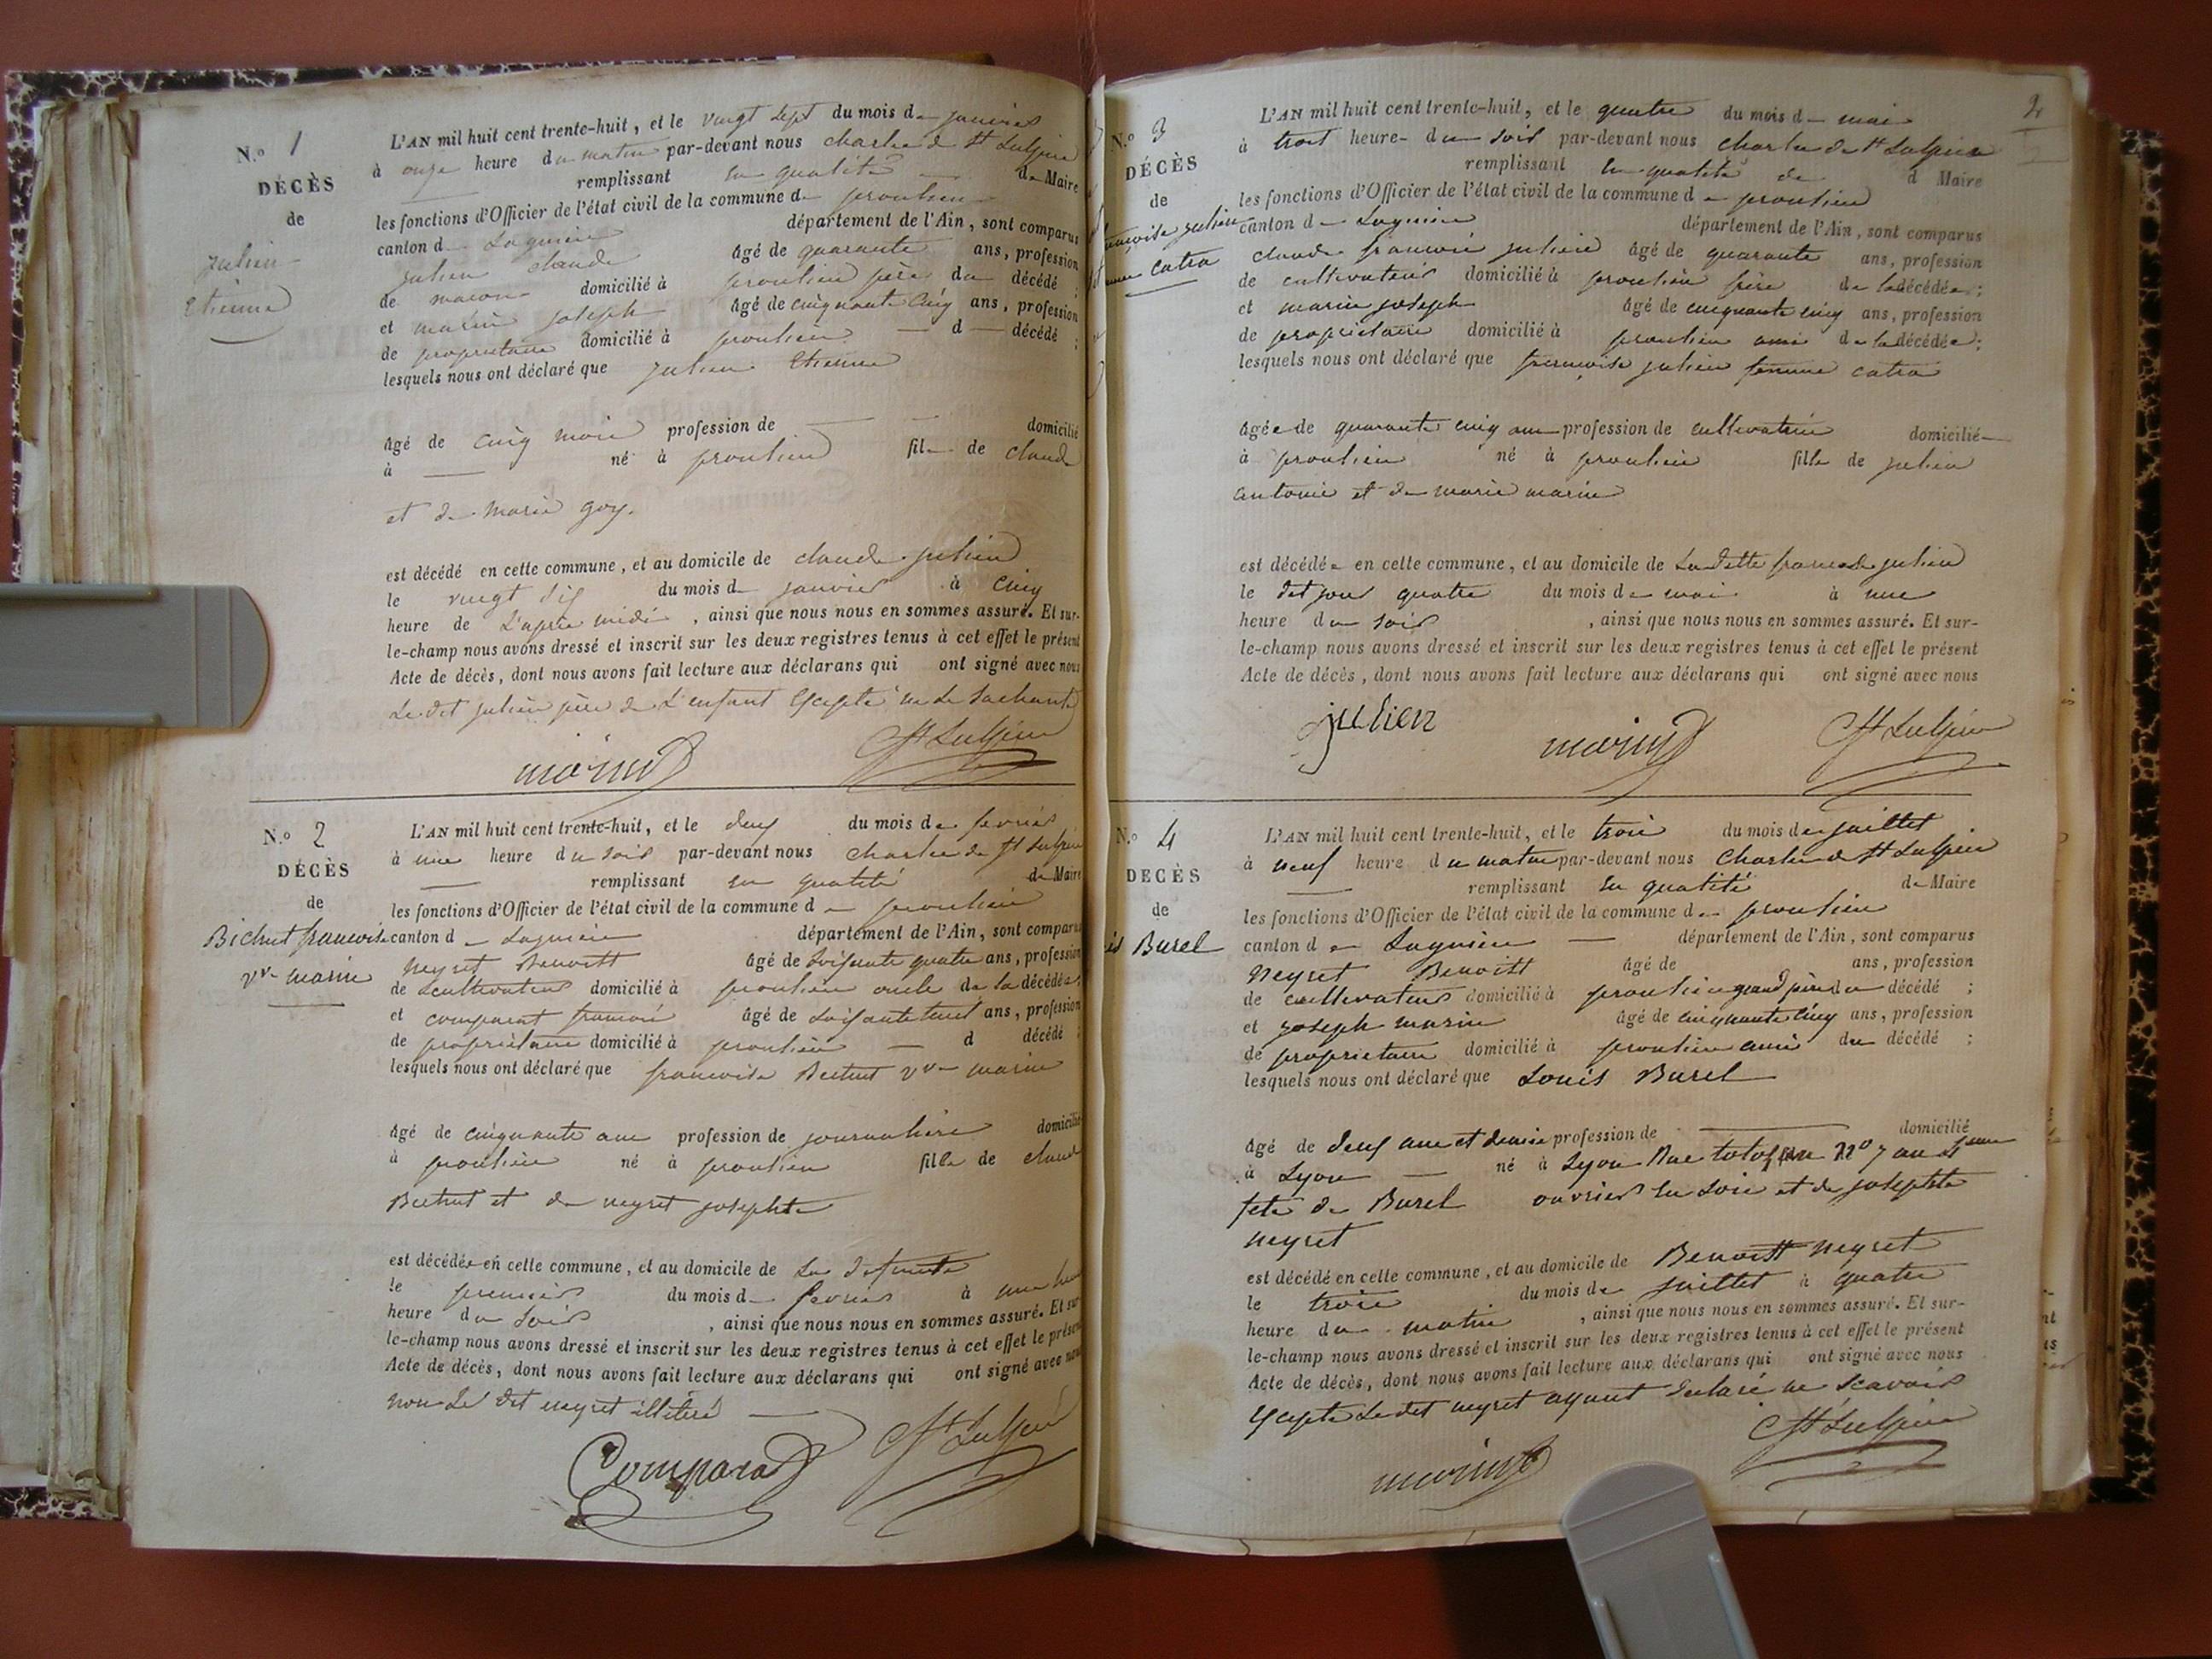 N.o 1
DÉCÈS
de
julien
Etienne
L'AN mil huit cent trente-huit, et le vingt sept du mois de janvier
à onze heure du matin par-devant nous charles de St Sulpice
remplissant en qualité de Maire
les fonctions d'Officier de l'état civil de la commune de proulieu
canton de Lagnieu département de l'Ain, sont comparus
julien claude âgé de quarante ans, profession
de maçon domicilié à proulieu père du décédé ;
et marin joseph âgé de cinquante cinq ans, profession
de propriétaire domicilié à proulieu — d — décédé ;
lesquels nous ont déclaré que julien Etienne
âgé de cinq mois profession de — domicilié
à — né à proulieu fils de claude
et de marie goy.
est décédé en cette commune, et au domicile de claude julien
le vingt six du mois de janvier à cinq
heure de L'après midi, ainsi que nous nous en sommes assuré. Et sur-
le-champ nous avons dressé et inscrit sur les deux registres tenus à cet effet le présent
Acte de décès, dont nous avons fait lecture aux déclarans qui ont signé avec nous
Le dit julien père de L'enfant Excepté ne Le Sachant
marin St Sulpice
N.o 2
DÉCÈS
de
Bichut francoise
vve marin
L'AN mil huit cent trente-huit, et le deux du mois de fevrier
à une heure du soir par-devant nous charles de St Sulpice
— remplissant en qualité de Maire
les fonctions d'Officier de l'état civil de la commune de proulieu
canton de Lagnieu département de l'Ain, sont comparus
neyret Benoitt âgé de soixante quatre ans, profession
de cultivateur domicilié à proulieu oncle de la décédée ;
et comparat francois âgé de soixante huit ans, profession
de propriétaire domicilié à proulieu — d décédé ;
lesquels nous ont déclaré que francoise Bichut vve marin
âgé de cinquante ans profession de journalière domicilié
à proulieu né à proulieu fille de claude
Bichut et de neyret josephte
est décédée en cette commune, et au domicile de La defunte
le premier du mois de fevrier à une
heure du soir, ainsi que nous nous en sommes assuré. Et sur-
le-champ nous avons dressé et inscrit sur les deux registres tenus à cet effet le présent
Acte de décès, dont nous avons fait lecture aux déclarans qui ont signé avec nous
non Le dit neyret illitéré —
Comparat St Sulpice
2
N.o 3
DÉCÈS
de
julien
catra
L'AN mil huit cent trente-huit, et le quatre du mois de mai
à trois heure du soir par-devant nous charles de St Sulpice
remplissant en qualité de d Maire
les fonctions d'Officier de l'état civil de la commune de proulieu
canton de Lagnieu département de l'Ain, sont comparus
claude francois julien âgé de quarante ans, profession
de cultivateur domicilié à proulieu frère de la décédée ;
et marin joseph âgé de cinquante cinq ans, profession
de propriétaire domicilié à proulieu ami de la décédée ;
lesquels nous ont déclaré que francoise julien femme catra
âgée de quarante cinq ans profession de cultivatrice domicilié
à proulieu né à proulieu fille de julien
antoine et de marie marin
est décédée en cette commune, et au domicile de Ladite francoise julien
le dit jour quatre du mois de mai à une
heure du soir, ainsi que nous nous en sommes assuré. Et sur-
le-champ nous avons dressé et inscrit sur les deux registres tenus à cet effet le présent
Acte de décès, dont nous avons fait lecture aux déclarans qui ont signé avec nous
julien marin St Sulpice
N.o 4
DÉCÈS
de
Burel
L'AN mil huit cent trente-huit, et le trois du mois de juillet
à neuf heure du matin par-devant nous Charles de St Sulpice
— remplissant en qualité de Maire
les fonctions d'Officier de l'état civil de la commune de proulieu
canton de Lagnieu — département de l'Ain, sont comparus
Neyret Benoitt âgé de ans, profession
de cultivateur domicilié à proulieu grand père du décédé ;
et joseph marin âgé de cinquante cinq ans, profession
de propriétaire domicilié à proulieu ami du décédé ;
lesquels nous ont déclaré que Louis Burel
âgé de deux ans et demie profession de — domicilié
à Lyon — né à Lyon Rue no 7 au
de Burel ouvrier en soie et de josephte
neyret
est décédé en cette commune, et au domicile de Benoitt neyret
le trois du mois de juillet à quatre
heure du matin, ainsi que nous nous en sommes assuré. Et sur-
le-champ nous avons dressé et inscrit sur les deux registres tenus à cet effet le présent
Acte de décès, dont nous avons fait lecture aux déclarans qui ont signé avec nous
Excepté Le dit neyret ayant declaré ne scavoir
marin St Sulpice